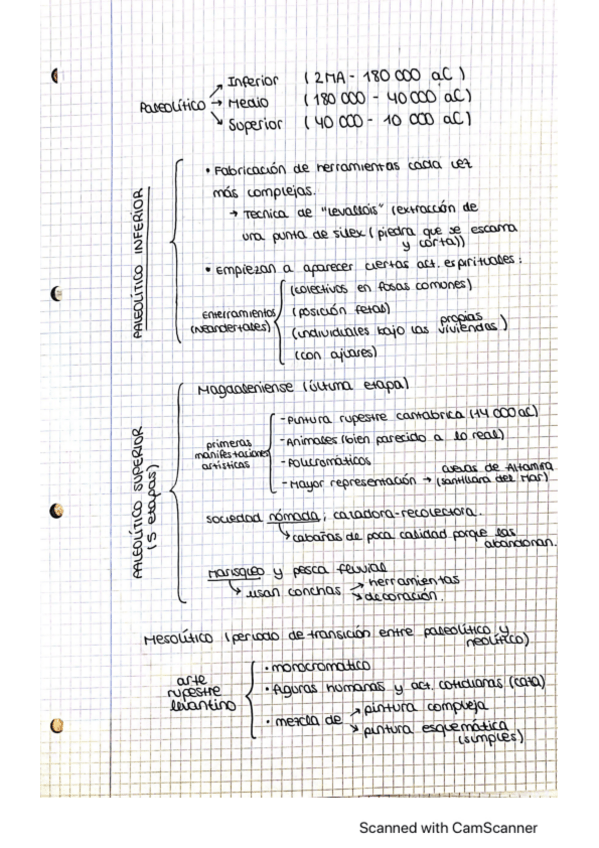 Inferior (2MA - 180 000 aC)
Paleolítico → Medio (180 000 - 40 000 aC)
Superior (40 000 - 10 000 aC)
PALEOLÍTICO INFERIOR
• Fabricación de herramientas cada vez
más complejas.
→ Tecnica de "levallois" (extracción de
una punta de silex (piedra que se escama
y corta))
• Empiezan a aparecer ciertas act. espirituales:
Enterramientos
(Neandertales)
(colectivos en fosas comunes)
(posición fetal)
(individuales bajo las propias viviendas)
(con ajuares)
PALEOLÍTICO SUPERIOR
(5 etapas)
Magdaleniense (última etapa)
primeras
manifestaciones
artísticas
- Pintura rupestre cantabrica (14 000 aC)
- Animales (bien parecido a lo real)
- Policromáticos
- Mayor representación → cuevas de Altamira
(Santillana del Mar)
Sociedad nómada, cazadora-recolectora.
cabañas de poca calidad porque las
abandonan.
Marisqueo y pesca fluvial
usan conchas → herramientas
→ decoración.
Mesolítico (periodo de transición entre paleolítico y
neolítico)
arte
rupestre
levantino
• monocromático
• Figuras humanas y act. cotidianas (caza)
• mezcla de → pintura compleja
→ pintura esquemática
(simples)
Scanned with CamScanner